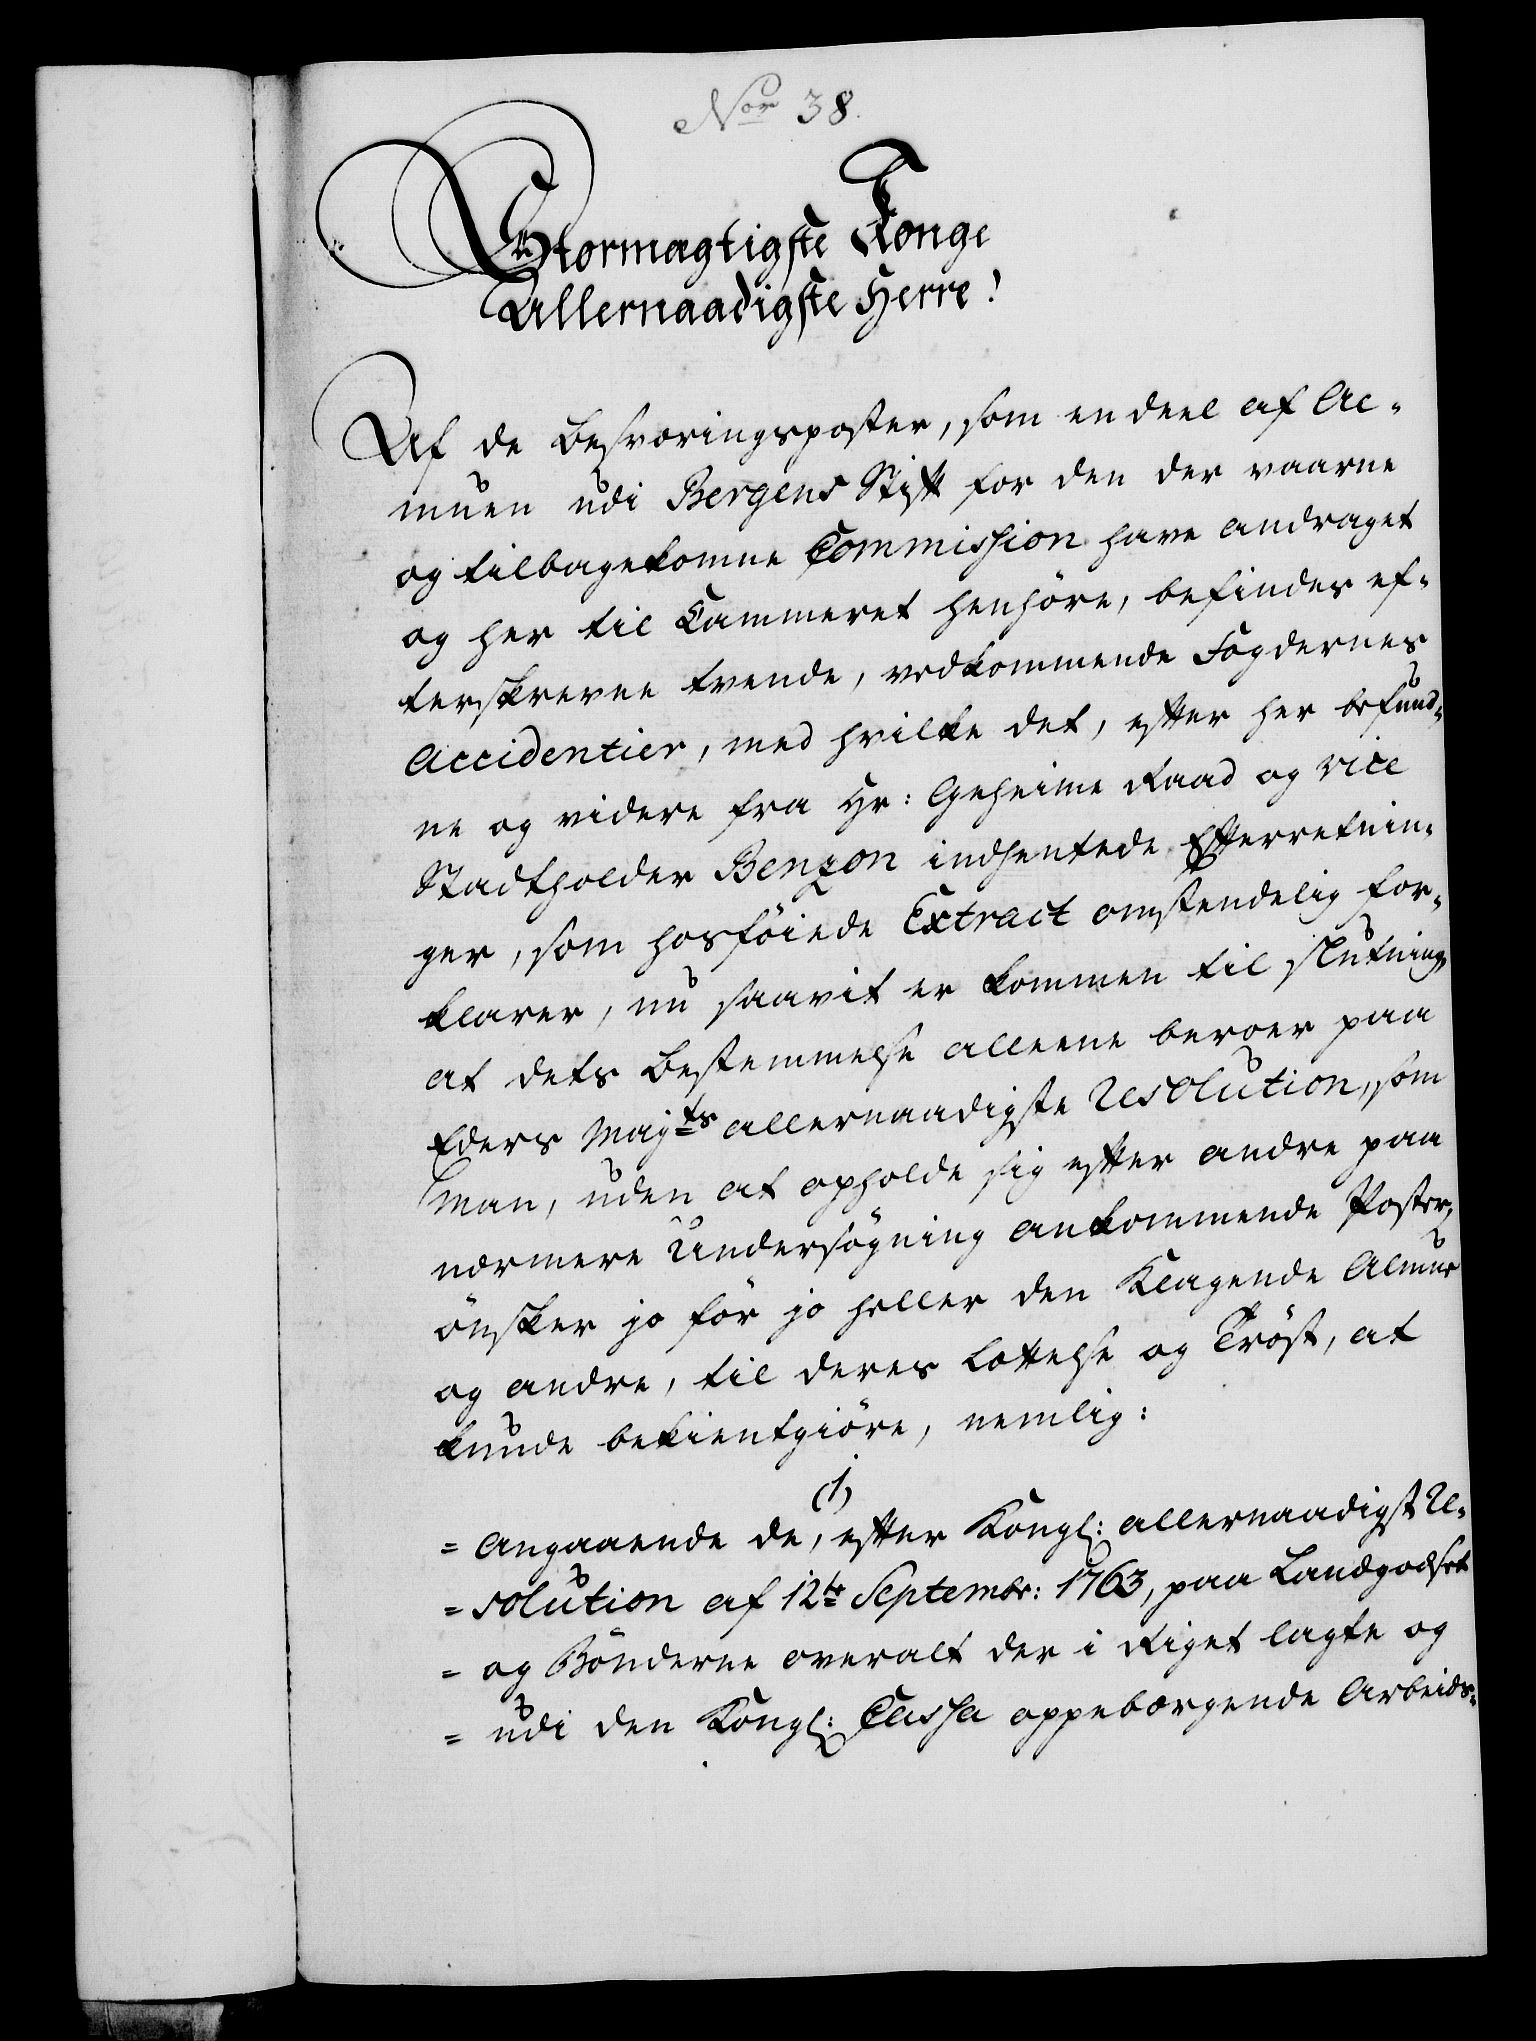 Nor 38.
Stormægtigste Konge
Allernaadigste Herre!
Af de Besværingsposter, som en deel af Al-
muen udi Bergens Stift for den der værne
og tilbagekomne Commission have andraget
og her til Cammeret henhöre, befindes ef-
terskrevne tvende, vedkommende Fogdernes
Accidentier, med hvilke det, efter her befund-
ne og videre fra Hr: Geheime Raad og Vice
Stadtholder Benzon indhentede Efterretnin-
ger, som hosföiede Extract omstendelig for-
klarer, nu saavit er kommen til slutning,
at dets Bestemmelse alleene beroer paa
Eders Majts allernaadigste Resolution, som
man, uden at opholde sig efter andre paa
nærmere Undersögning ankommende Poster,
önsker jo för jo heller den Klagende Almue
og andre, til deres Lættelse og Tröst, at
kunde bekientgiöre, nemlig:
(1)
= Angaaende de, efter Kongl: allernaadigst Re-
= solution af 12te Septembr: 1763, paa Landgodset
= og Bönderne overalt der i Riget lagte og
= udi den Kongl: Cassa oppebærgende Arbeids-